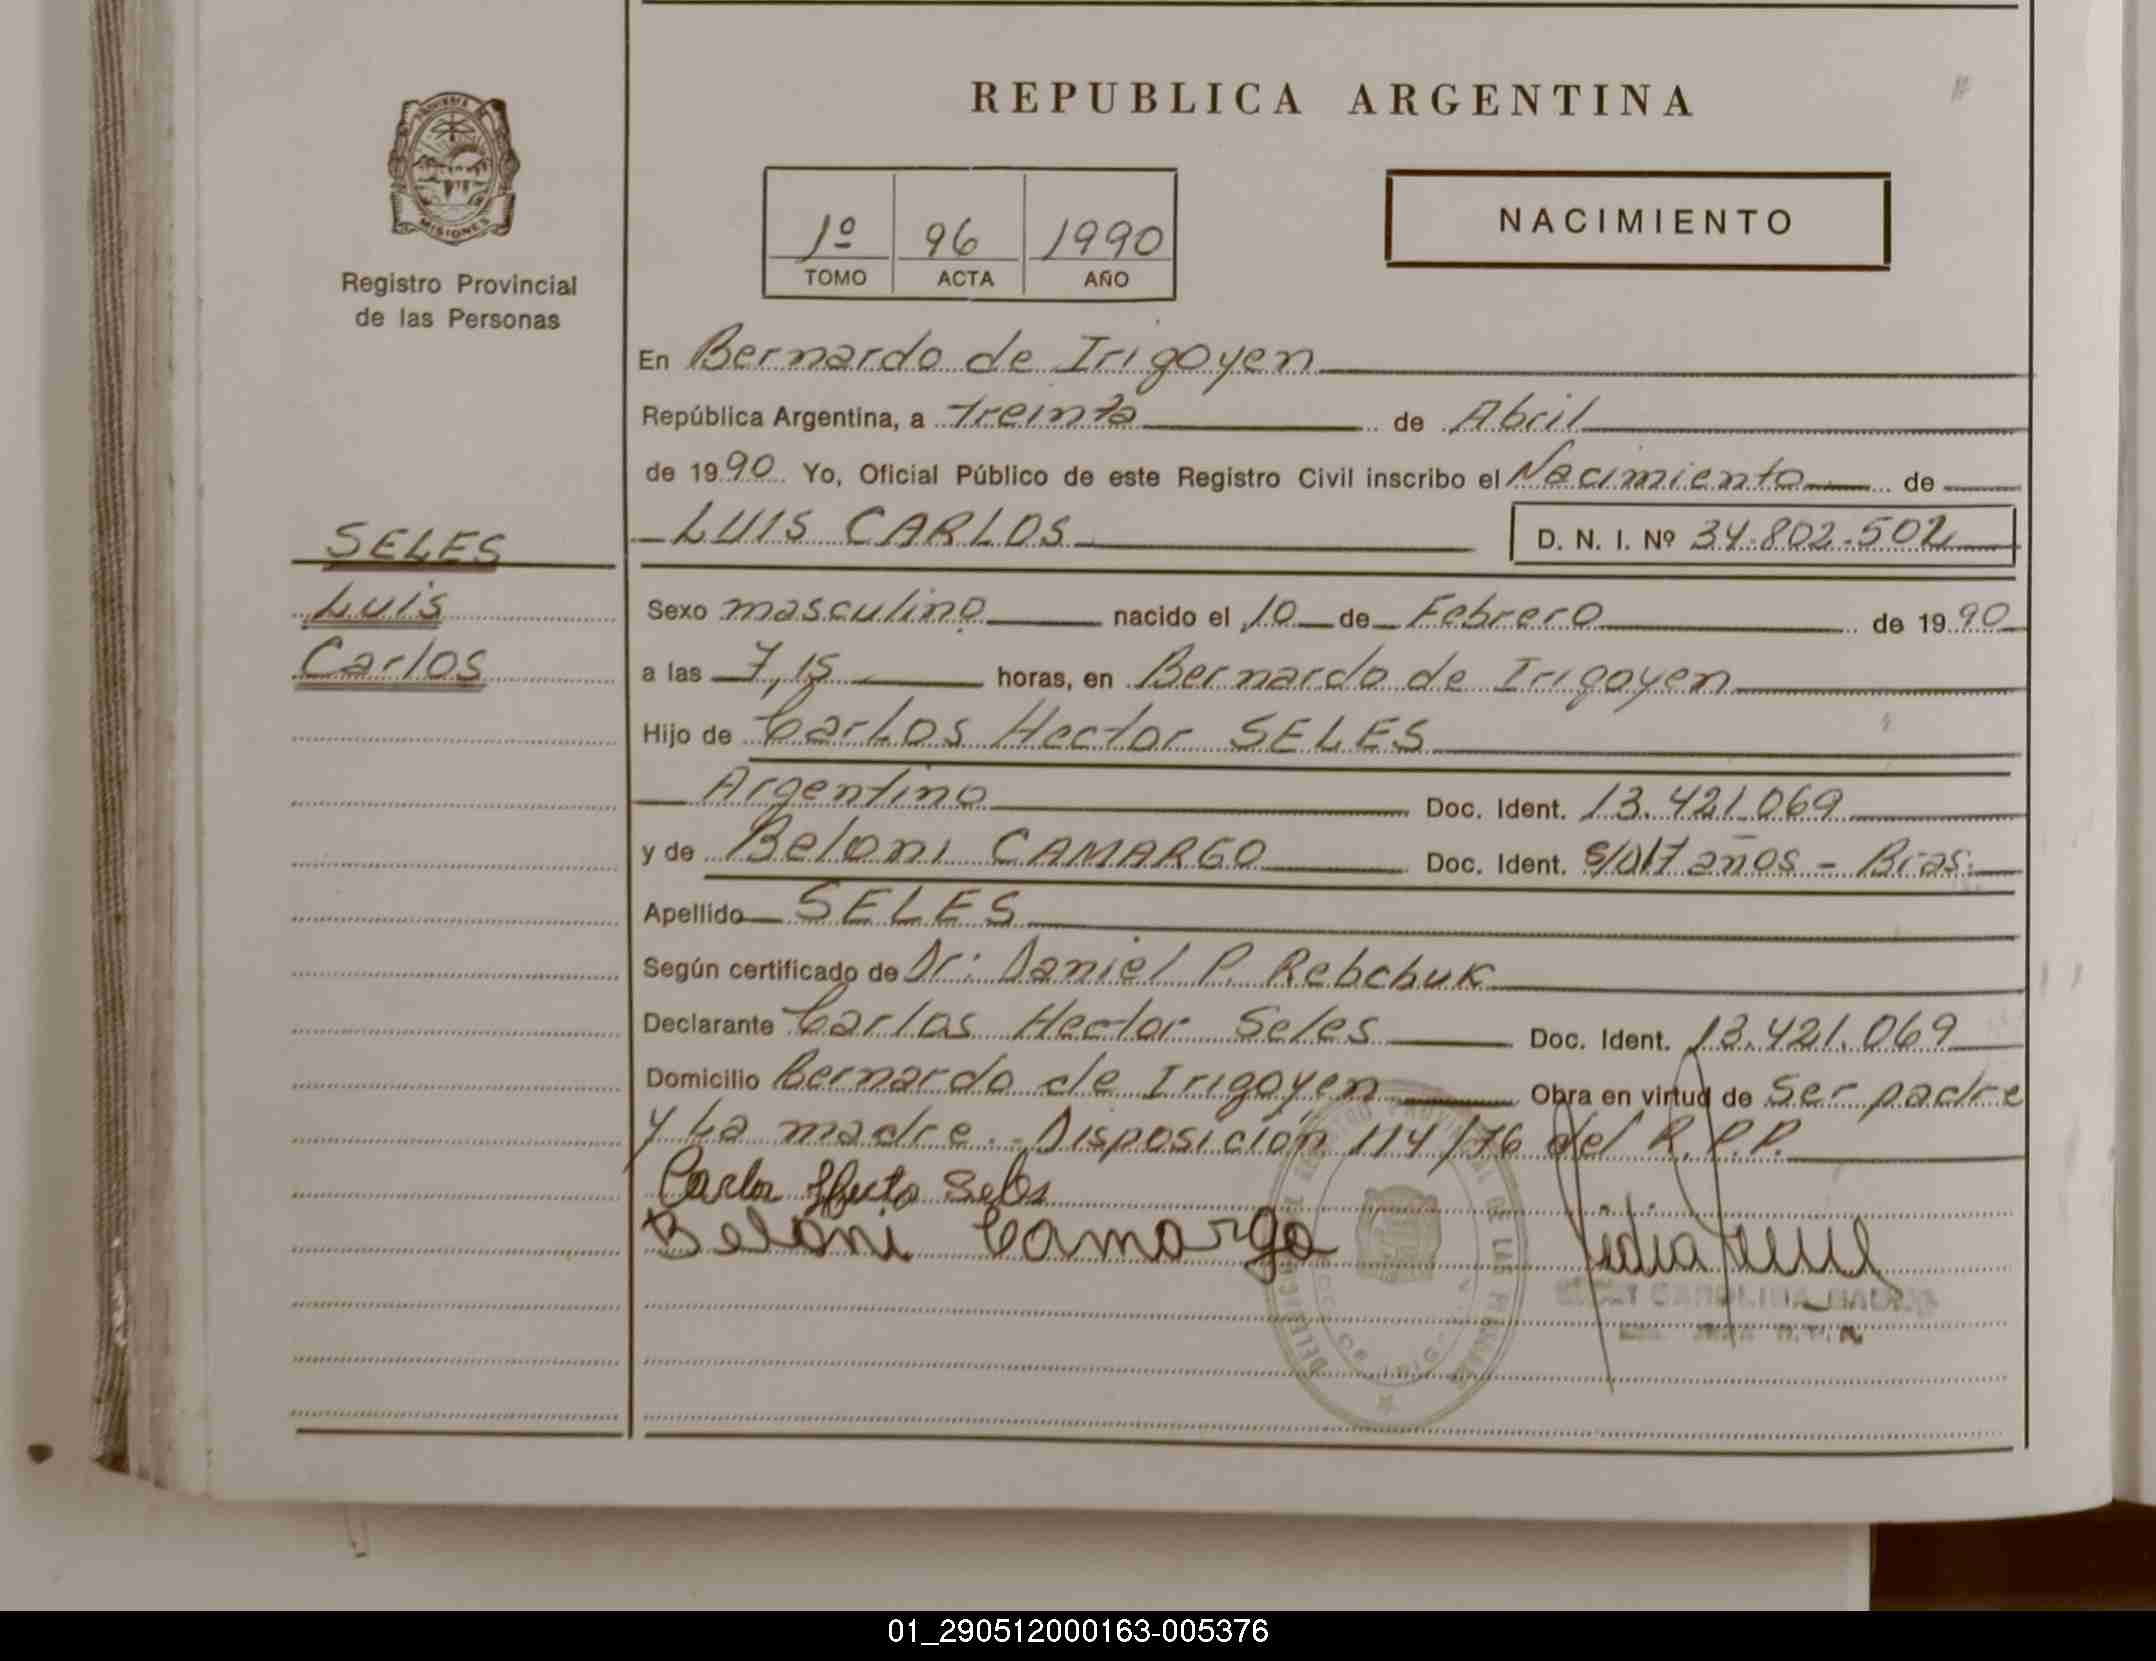 REPUBLICA ARGENTINA
MISIONES
Registro Provincial
de las Personas
1º 96 1990
TOMO ACTA AÑO
NACIMIENTO
En Bernardo de Irigoyen
República Argentina, a treinta de Abril
de 1990 Yo, Oficial Público de este Registro Civil inscribo el Nacimiento de
LUIS CARLOS D. N. I. Nº 34.802.502
SELES
Luis
Carlos
Sexo masculino nacido el 10 de Febrero de 1990
a las 7,15 horas, en Bernardo de Irigoyen
Hijo de Carlos Hector SELES
Argentino Doc. Ident. 13.421.069
y de Beloni CAMARGO Doc. Ident. 17 años - Bras.
Apellido SELES
Según certificado de Dr: Daniel P. Rebchuk
Declarante Carlos Hector Seles Doc. Ident. 13.421.069
Domicilio Bernardo de Irigoyen Obra en virtud de Ser padre
y La madre.- Disposición 114/76 del R.P.P.
Carlos Hecto Seles
Beloni Camargo
01_290512000163-005376